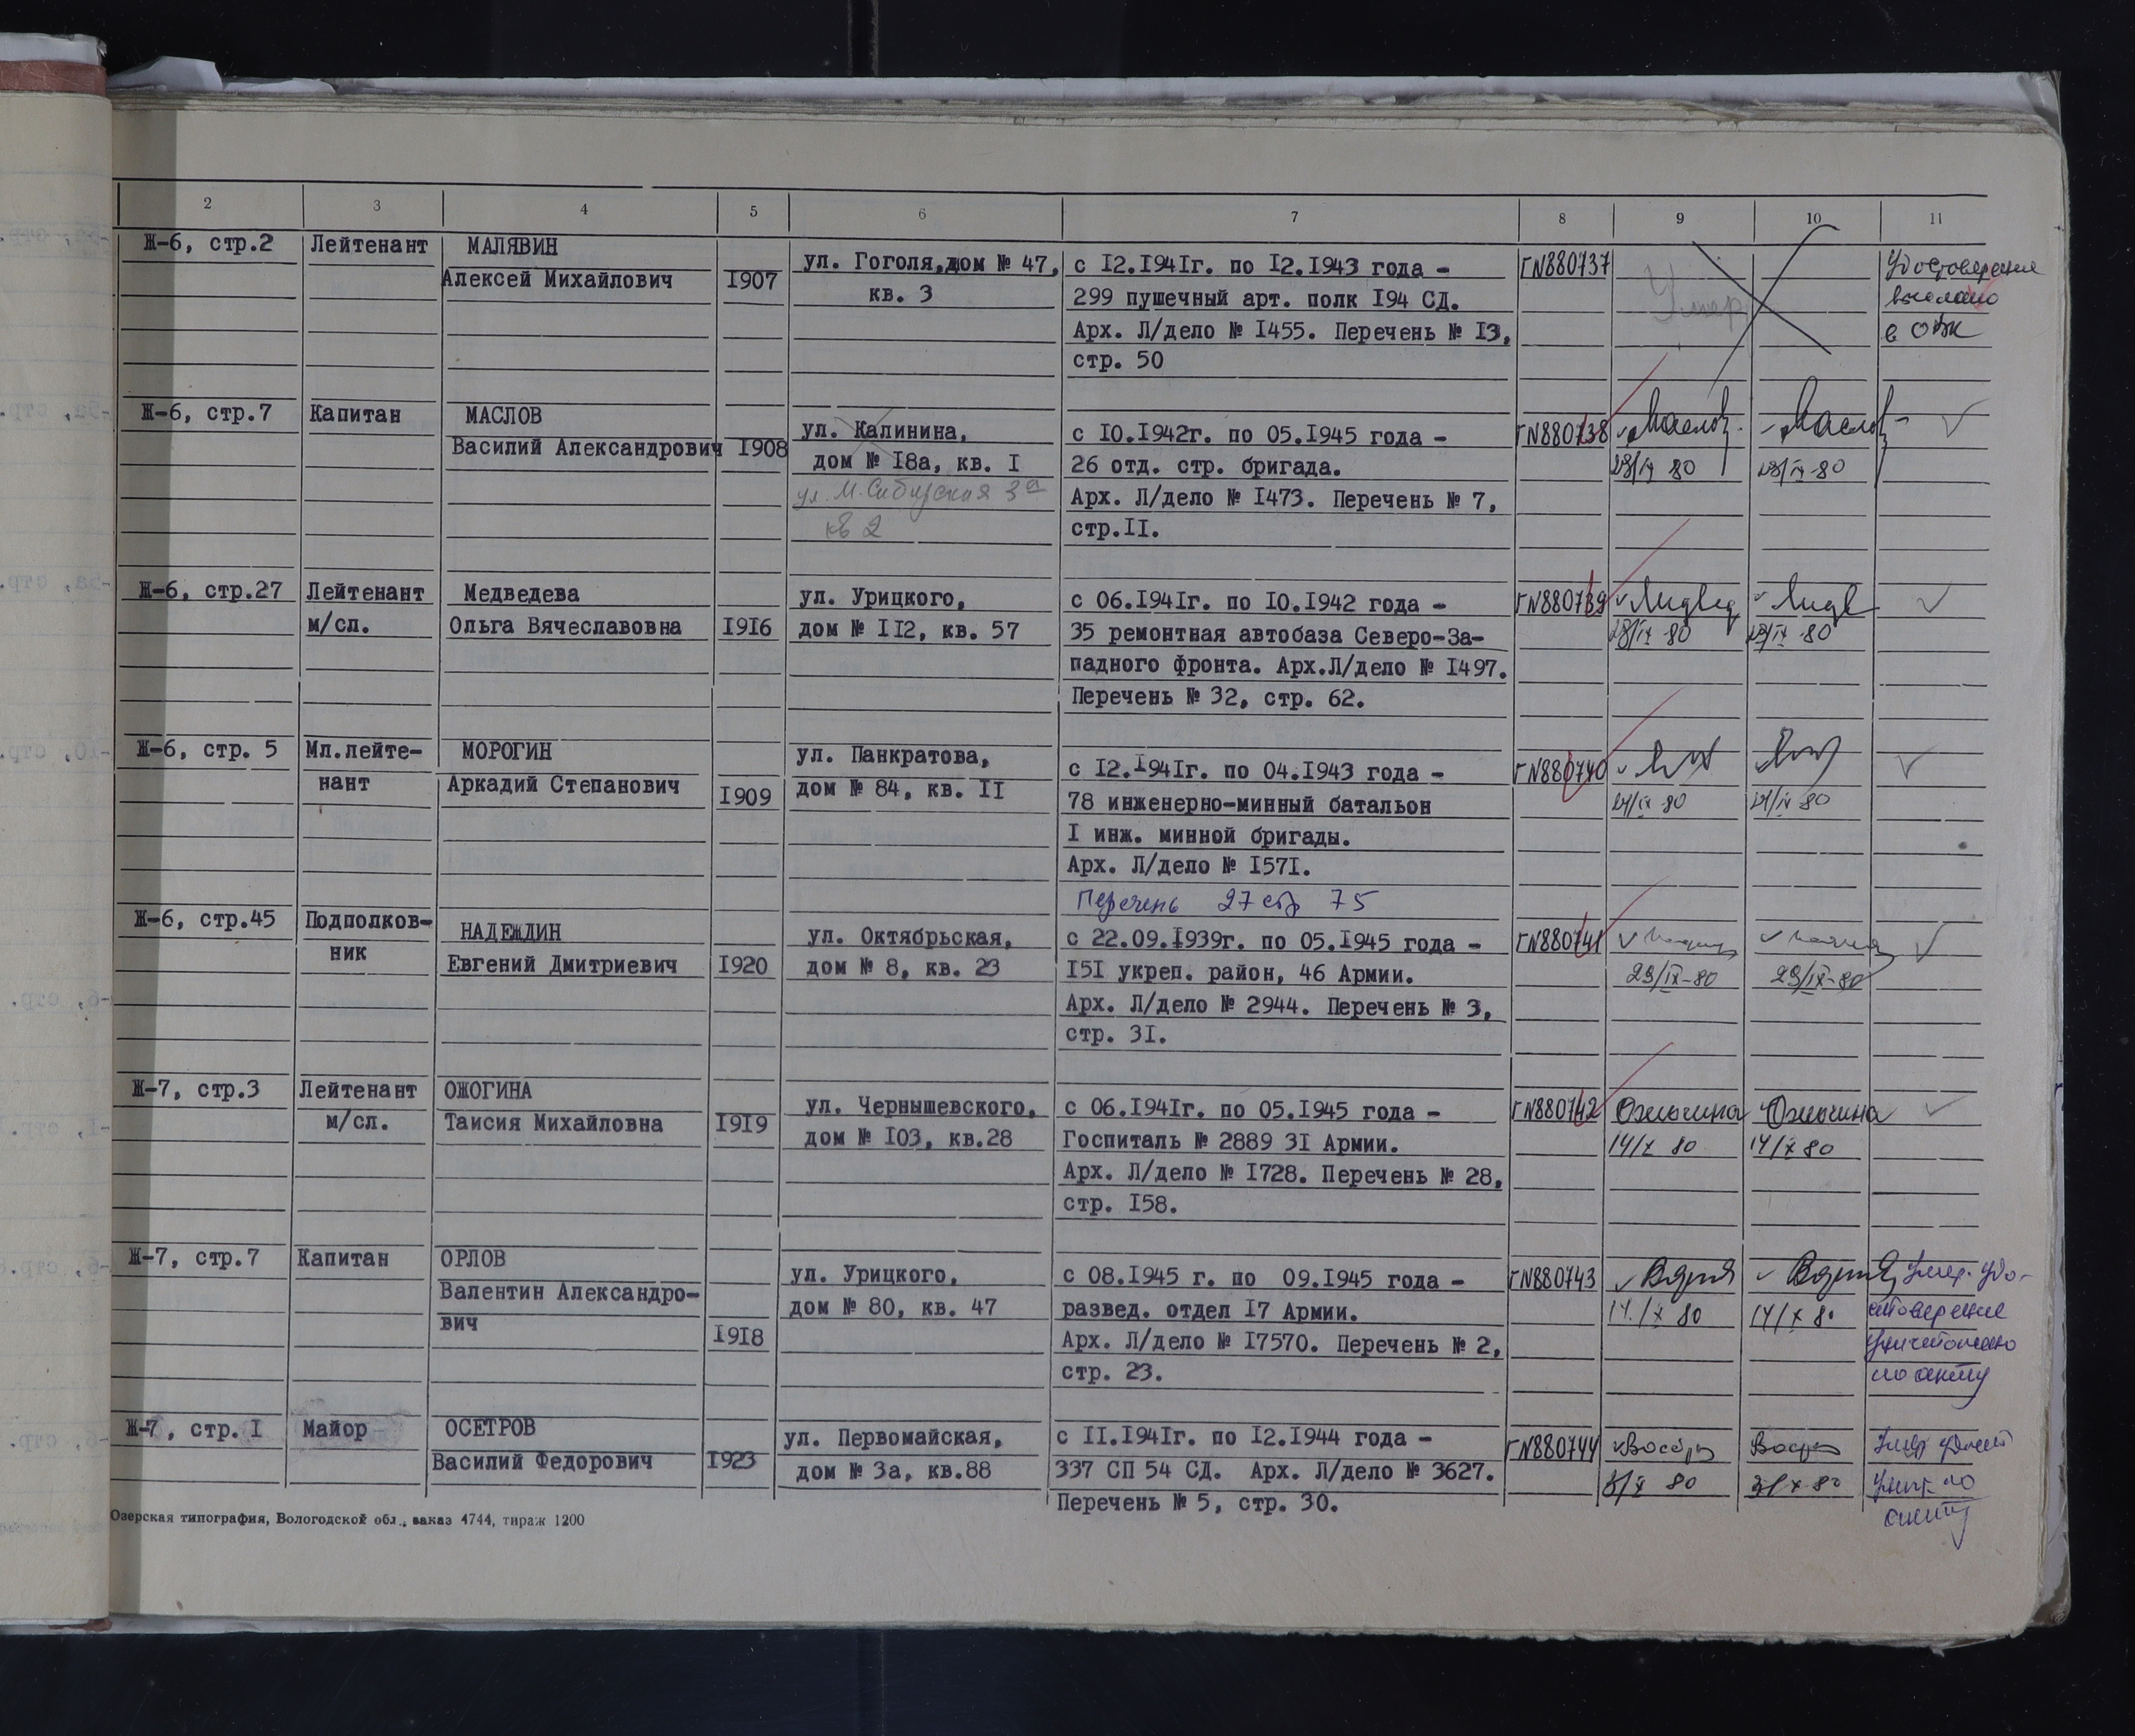 2 3 4 5 6 7 8 9 10 11
Ж-6, стр.2 Лейтенант МАЛЯВИН
Алексей Михайлович I907
ул. Гоголя, дом № 47,
кв. 3
с I2.I94Iг. по I2.I943 года -
299 пушечный арт. полк I94 СД.
Арх. Л/дело № I455. Перечень № I3,
стр. 50
ГN880737
Умер
Удостоверение
выслано
в ОВК
Ж-6, стр.7 Капитан МАСЛОВ
Василий Александрович I908
ул. Калинина,
дом № I8а, кв. I
ул. М. Сибирская 3а
кв 2
с I0.I942г. по 05.I945 года -
26 отд. стр. бригада.
Арх. Л/дело № I473. Перечень № 7,
стр.II.
ГN880738 Маслов Маслов
29/IX 80 29/IX-80
Ж-6, стр.27 Лейтенант Медведева
м/сл. Ольга Вячеславовна I9I6
ул. Урицкого,
дом № II2, кв. 57
с 06.I94Iг. по I0.I942 года -
35 ремонтная автобаза Северо-За-
падного фронта. Арх.Л/дело № I497.
Перечень № 32, стр. 62.
ГN880739
Ж-6, стр. 5 Мл.лейте- МОРОГИН
нант Аркадий Степанович I909
ул. Панкратова,
дом № 84, кв. II
с I2.I94Iг. по 04.I943 года -
78 инженерно-минный батальон
I инж. минной бригады.
Арх. Л/дело № I57I.
Перечень 27 стр 75
ГN880740
Ж-6, стр.45 Подполков- НАДЕЖДИН
ник Евгений Дмитриевич I920
ул. Октябрьская,
дом № 8, кв. 23
с 22.09.I939г. по 05.I945 года -
I5I укреп. район, 46 Армии.
Арх. Л/дело № 2944. Перечень № 3,
стр. 3I.
ГN880741
29/IX-80 29/IX-80
Ж-7, стр.3 Лейтенант ОЖОГИНА
м/сл. Таисия Михайловна I9I9
ул. Чернышевского,
дом № I03, кв.28
с 06.I94Iг. по 05.I945 года -
Госпиталь № 2889 3I Армии.
Арх. Л/дело № I728. Перечень № 28,
стр. I58.
ГN880742 Ожогина Ожогина
14/X 80 14/X 80
Ж-7, стр.7 Капитан ОРЛОВ
Валентин Александро-
вич I9I8
ул. Урицкого,
дом № 80, кв. 47
с 08.I945 г. по 09.I945 года -
развед. отдел I7 Армии.
Арх. Л/дело № I7570. Перечень № 2,
стр. 23.
ГN880743
14/X 80 14/X 80
Умер. Удо-
стоверение
уничтожено
по акту
Ж-7, стр. I Майор ОСЕТРОВ
Василий Федорович I923
ул. Первомайская,
дом № 3а, кв.88
с II.I94Iг. по I2.I944 года -
337 СП 54 СД. Арх. Л/дело № 3627.
Перечень № 5, стр. 30.
ГN880744
Умер удост
унич. по
акту
Озерская типография, Вологодской обл., заказ 4744, тираж 1200